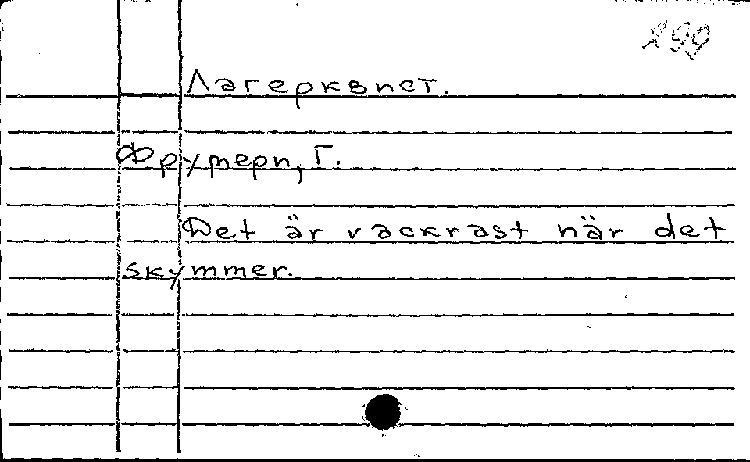 299
Лагерквист.
Фрумери, Г.
Det är vackrast när det
skymmer.